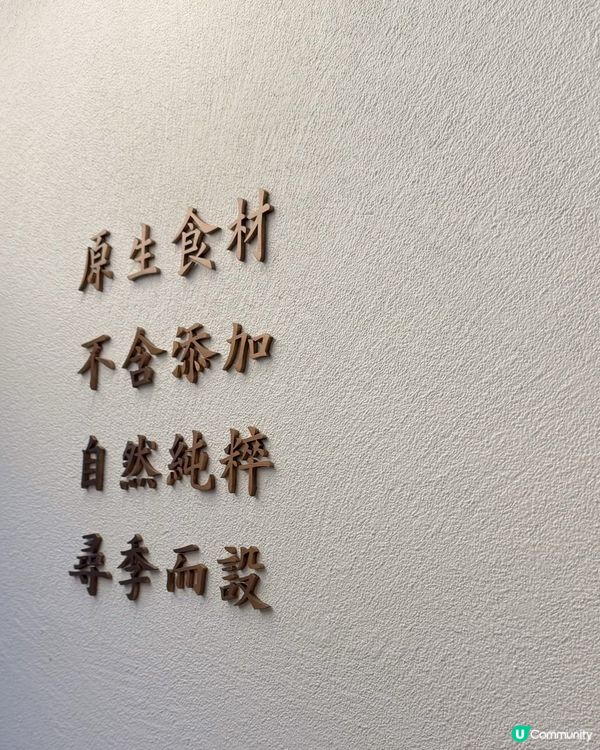 原生食材
不含添加
自然純粹
尋季而設
U Community